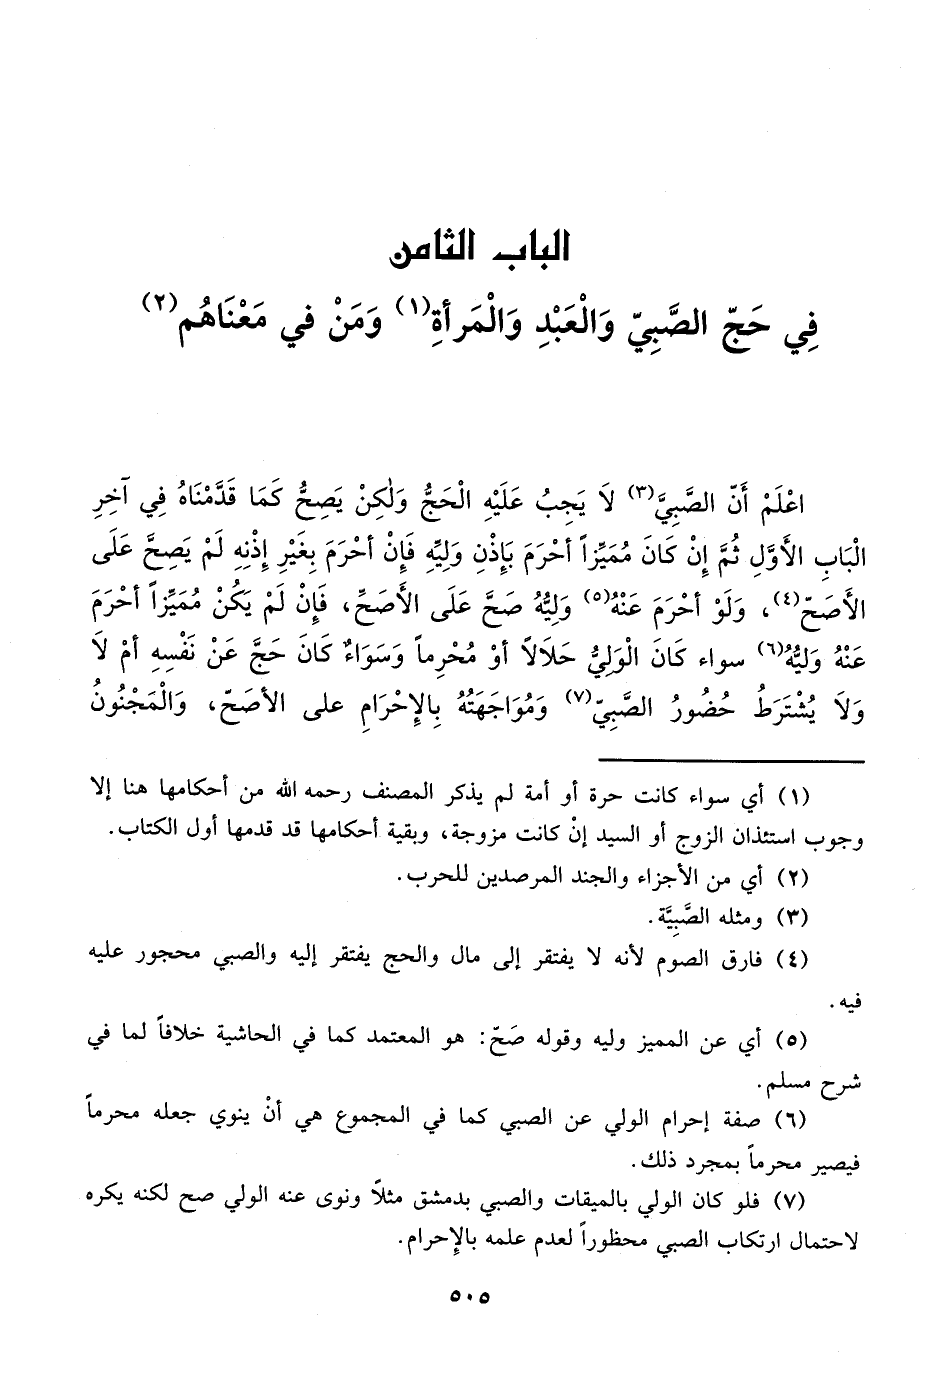 الباب الثامن
فِي حَجّ الصَّبِيّ وَالْعَبْدِ وَالْمَرأةِ(١) وَمَنْ في مَعْنَاهُم(٢)
اعْلَمْ أَنّ الصَّبِيَّ(٣) لَا يَجِبُ عَلَيْهِ الْحَجُّ وَلٰكِنْ يَصِحُّ كَمَا قَدَّمْنَاهُ فِي آخِرِ
الْبَابِ الأَوَّلِ ثُمَّ إِنْ كَانَ مُمَيِّزاً أحْرَمَ بَإِذْنِ وَلِيِّهِ فَإِنْ أحْرَمَ بِغَيْرِ إِذْنِهِ لَمْ يَصِحَّ عَلَى
الأَصَحّ(٤)، وَلَوْ أحْرَمَ عَنْهُ(٥) وَلِيُّهُ صَحَّ عَلَى الأَصَحِّ، فَإِنْ لَمْ يَكُنْ مُمَيِّزاً أحْرَمَ
عَنْهُ وَلِيُّهُ(٦) سواء كَانَ الْوَلِيُّ حَلَالاً أوْ مُحْرِماً وَسَوَاءٌ كَانَ حَجَّ عَنْ نَفْسِهِ أمْ لَا
وَلَا يُشْتَرَطُ حُضُورُ الصَّبِيّ(٧) وَمُوَاجَهَتُهُ بِالإِحْرَامِ على الأصَحّ، وَالْمَجْنُونُ
(١) أي سواء كانت حرة أو أمة لم يذكر المصنف رحمه الله من أحكامها هنا إلا
وجوب استئذان الزوج أو السيد إنْ كانت مزوجة، وبقية أحكامها قد قدمها أول الكتاب.
(٢) أي من الأجزاء والجند المرصدين للحرب.
(٣) ومثله الصَّبِيَّة.
(٤) فارق الصوم لأنه لا يفتقر إلى مال والحج يفتقر إليه والصبي محجور عليه
فيه.
(٥) أي عن المميز وليه وقوله صَحّ: هو المعتمد كما في الحاشية خلافاً لما في
شرح مسلم.
(٦) صفة إحرام الولي عن الصبي كما في المجموع هي أنْ ينوي جعله محرماً
فيصير محرماً بمجرد ذلك.
(٧) فلو كان الولي بالميقات والصبي بدمشق مثلاً ونوى عنه الولي صح لكنه يكره
لاحتمال ارتكاب الصبي محظوراً لعدم علمه بالإحرام.
٥٠٥